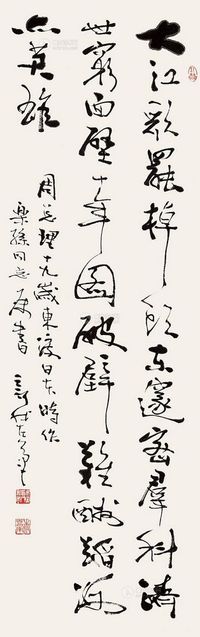 大江歌罷掉頭東邃密羣科濟
世窮面壁十年圖破壁難酬蹈海
亦英雄
周总理十九歲東渡日本時作
同志属書 新我左筆